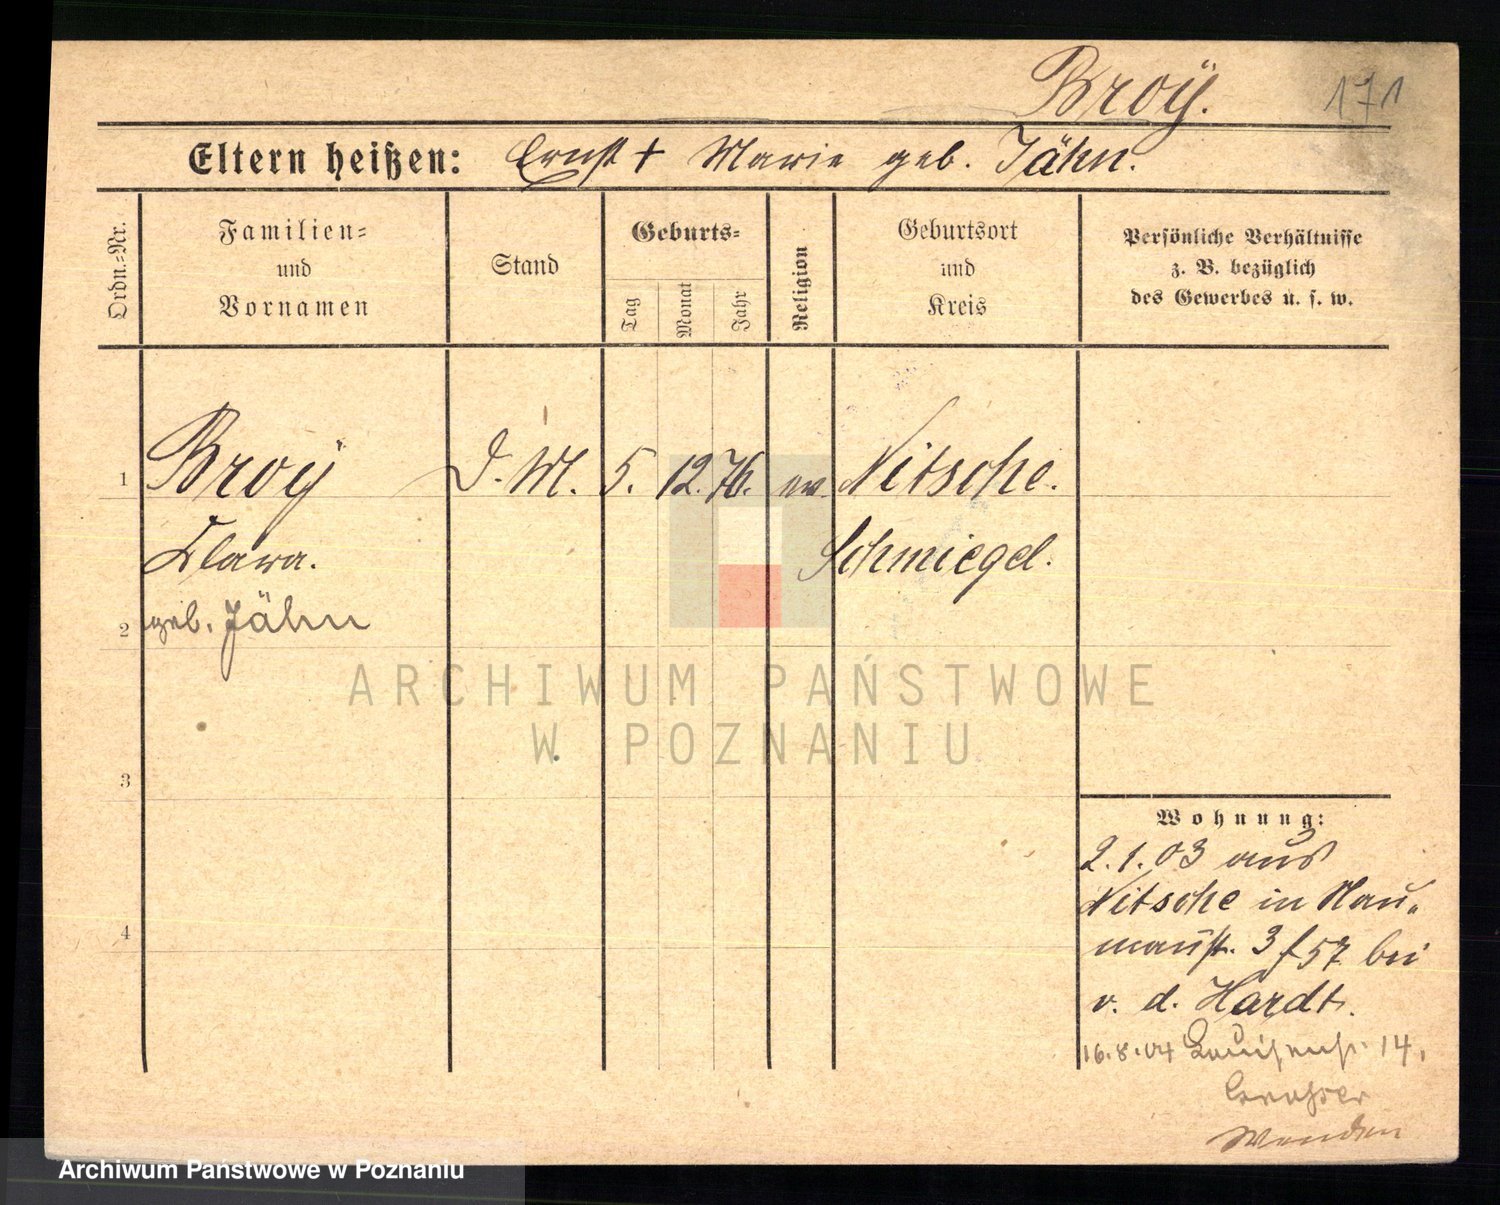 Broÿ.
171
Eltern heißen: Ernst + Marie geb. Jähn.
Ordn.-Nr.
Familien-
und
Vornamen
Stand
Geburts-
Tag
Monat
Jahr
Religion
Geburtsort
und
Kreis
Persönliche Verhältnisse
z. B. bezüglich
des Gewerbes u. s. w.
1 Broÿ D. M. 5. 12. 76. ev. Nitsche.
Clara. Schmiegel.
2 geb. Jähn
ARCHIWUM PAŃSTWOWE
W POZNANIU
3
4
Wohnung:
2.1.03 aus
Nitsche in Nau-
manst. 3 f 57 bei
v. d. Hardt.
16.8.04 Louisenst. 14,
Archiwum Państwowe w Poznaniu